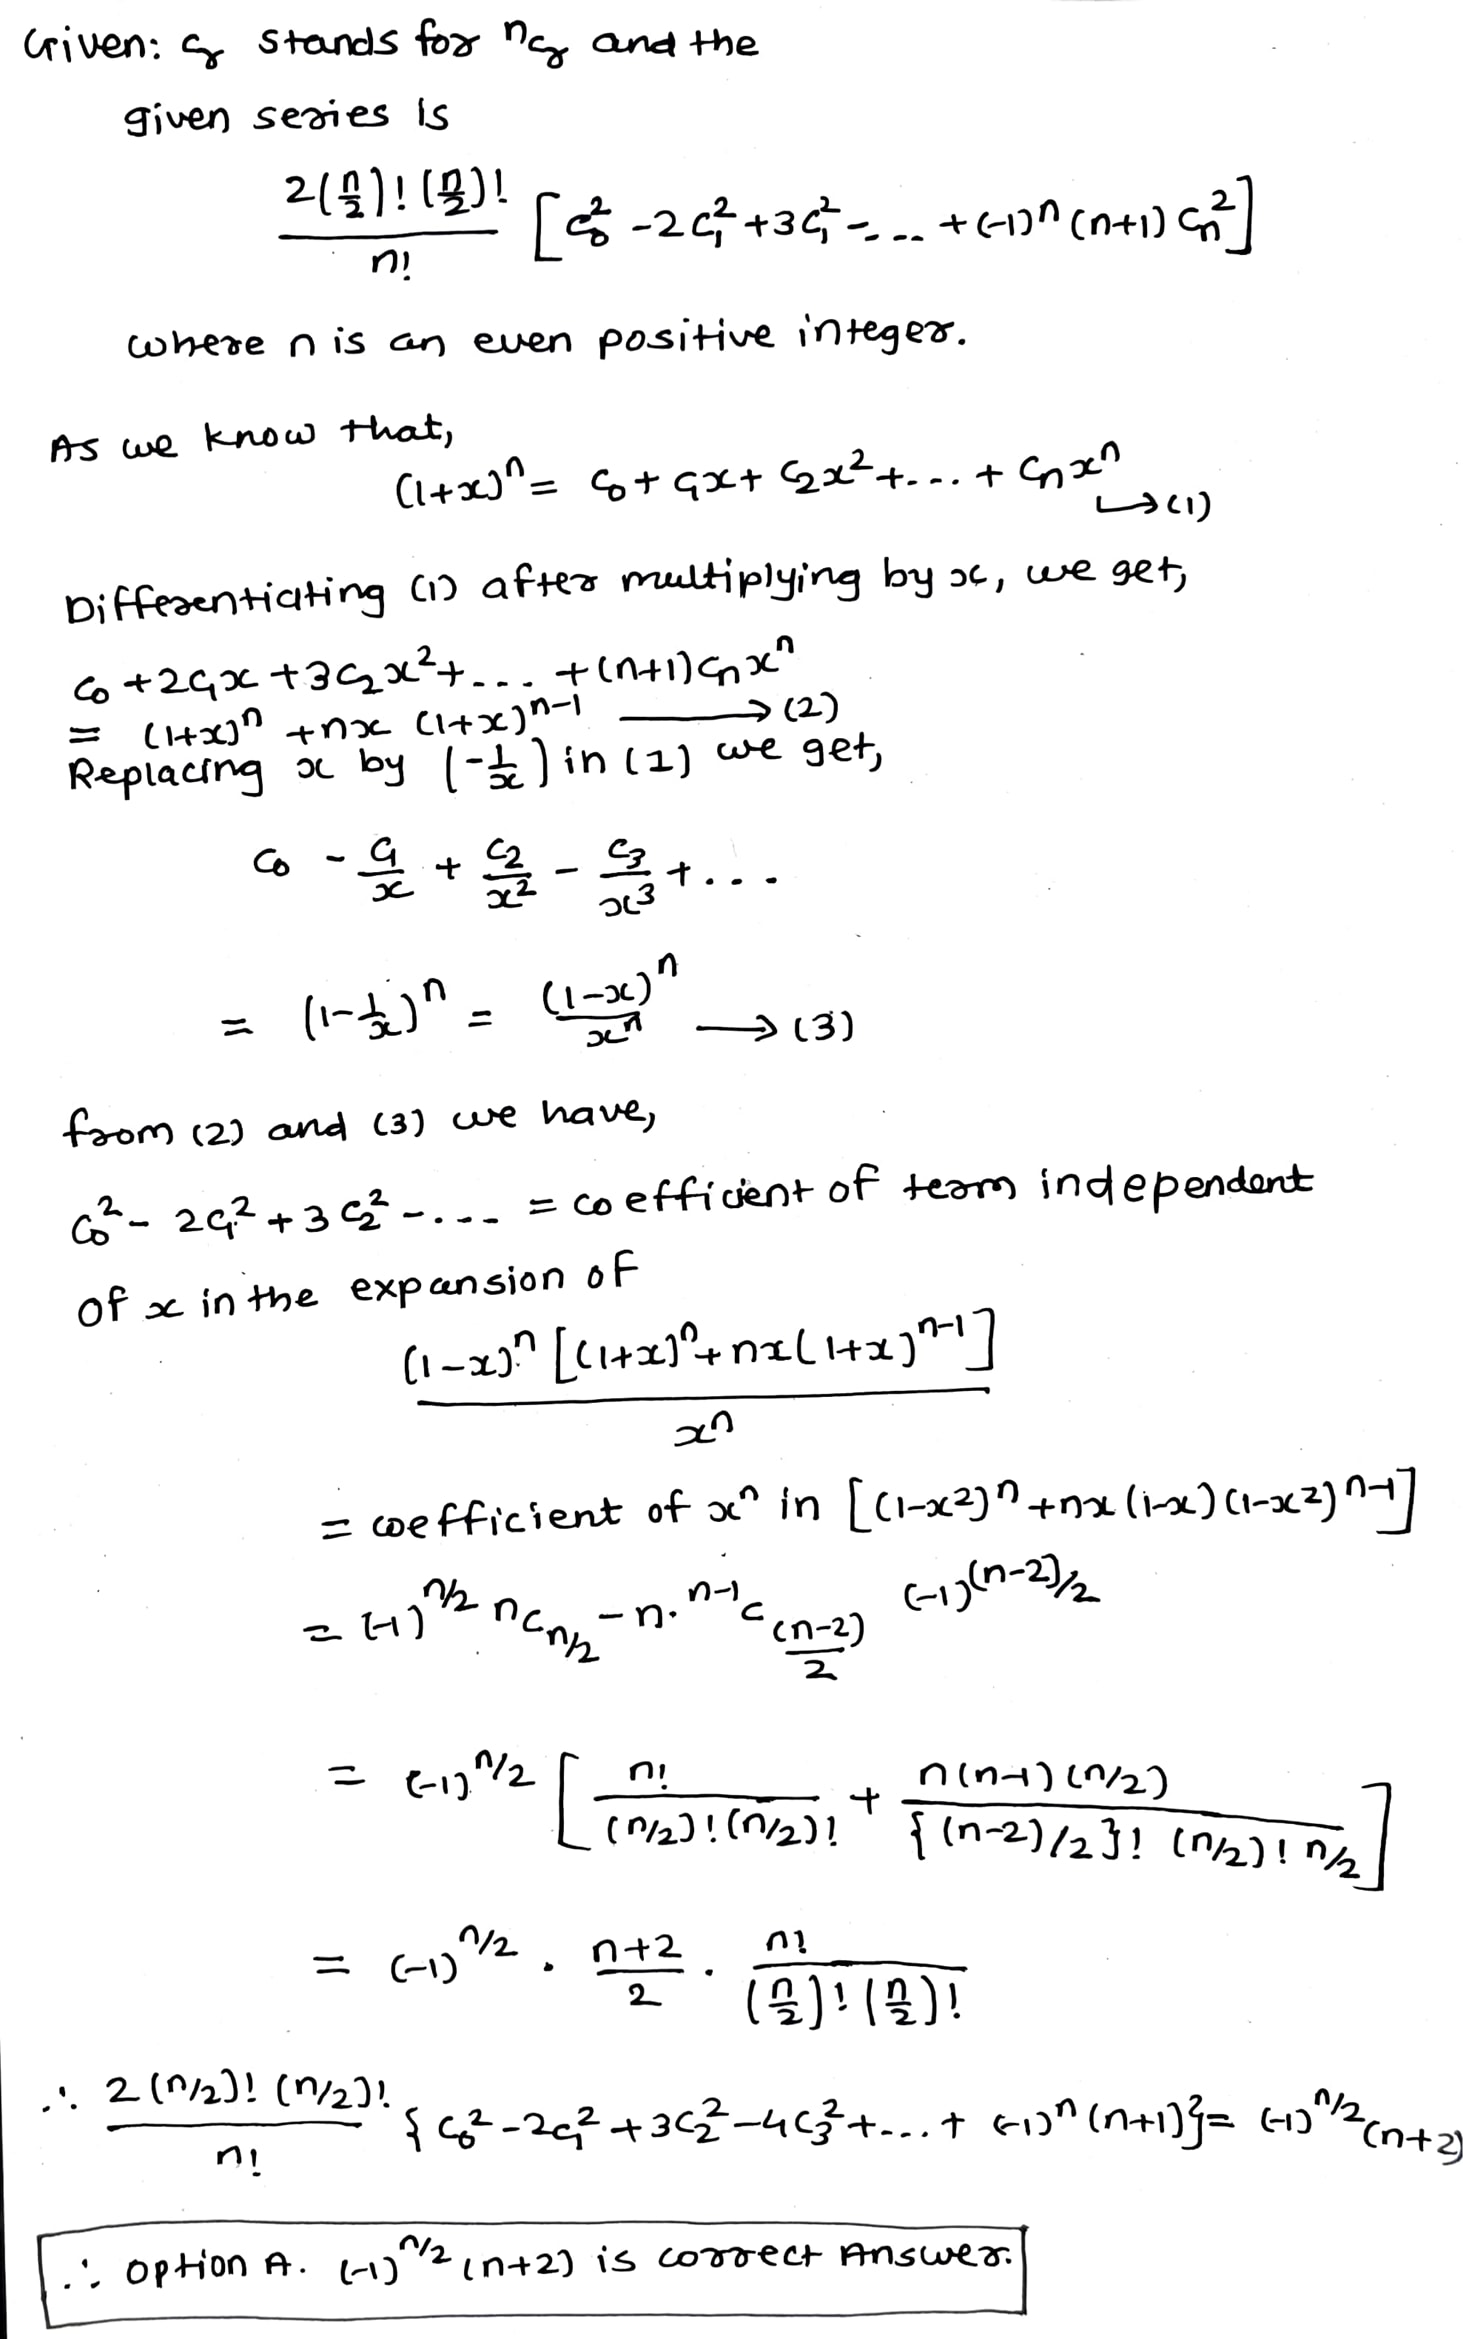 Given: Cr stands for nCr and the
given series is
2(n/2)!(n/2)! / n! [C0² -2C1² +3C1² -... +(-1)^n (n+1) Cn²]
where n is an even positive integer.
As we know that,
(1+x)^n = C0 + C1x + C2x² +... + Cn x^n → (1)
Differentiating (1) after multiplying by x, we get,
C0 +2C1x +3C2x² +... +(n+1)Cn x^n
= (1+x)^n +nx (1+x)^n-1 → (2)
Replacing x by (-1/x) in (1) we get,
C0 - C1/x + C2/x² - C3/x³ +...
= (1-1/x)^n = (1-x)^n / x^n → (3)
from (2) and (3) we have,
C0² - 2C1² + 3C2² -.... = coefficient of term independent
of x in the expansion of
(1-x)^n [(1+x)^n + nx(1+x)^n-1] / x^n
= coefficient of x^n in [(1-x²)^n +nx (1-x) (1-x²)^n-1]
= (-1)^n/2 nC n/2 - n. n-1C (n-2)/2 (-1)^(n-2)/2
= (-1)^n/2 [ n! / (n/2)!(n/2)! + n(n-1)(n/2) / {(n-2)/2}! (n/2)! n/2 ]
= (-1)^n/2 . n+2/2 . n! / (n/2)!(n/2)!
∴ 2(n/2)! (n/2)! / n! {C0² -2C1² +3C2² -4C3² +...+ (-1)^n (n+1)} = (-1)^n/2 (n+2)
∴ option A. (-1)^n/2 (n+2) is correct Answer.